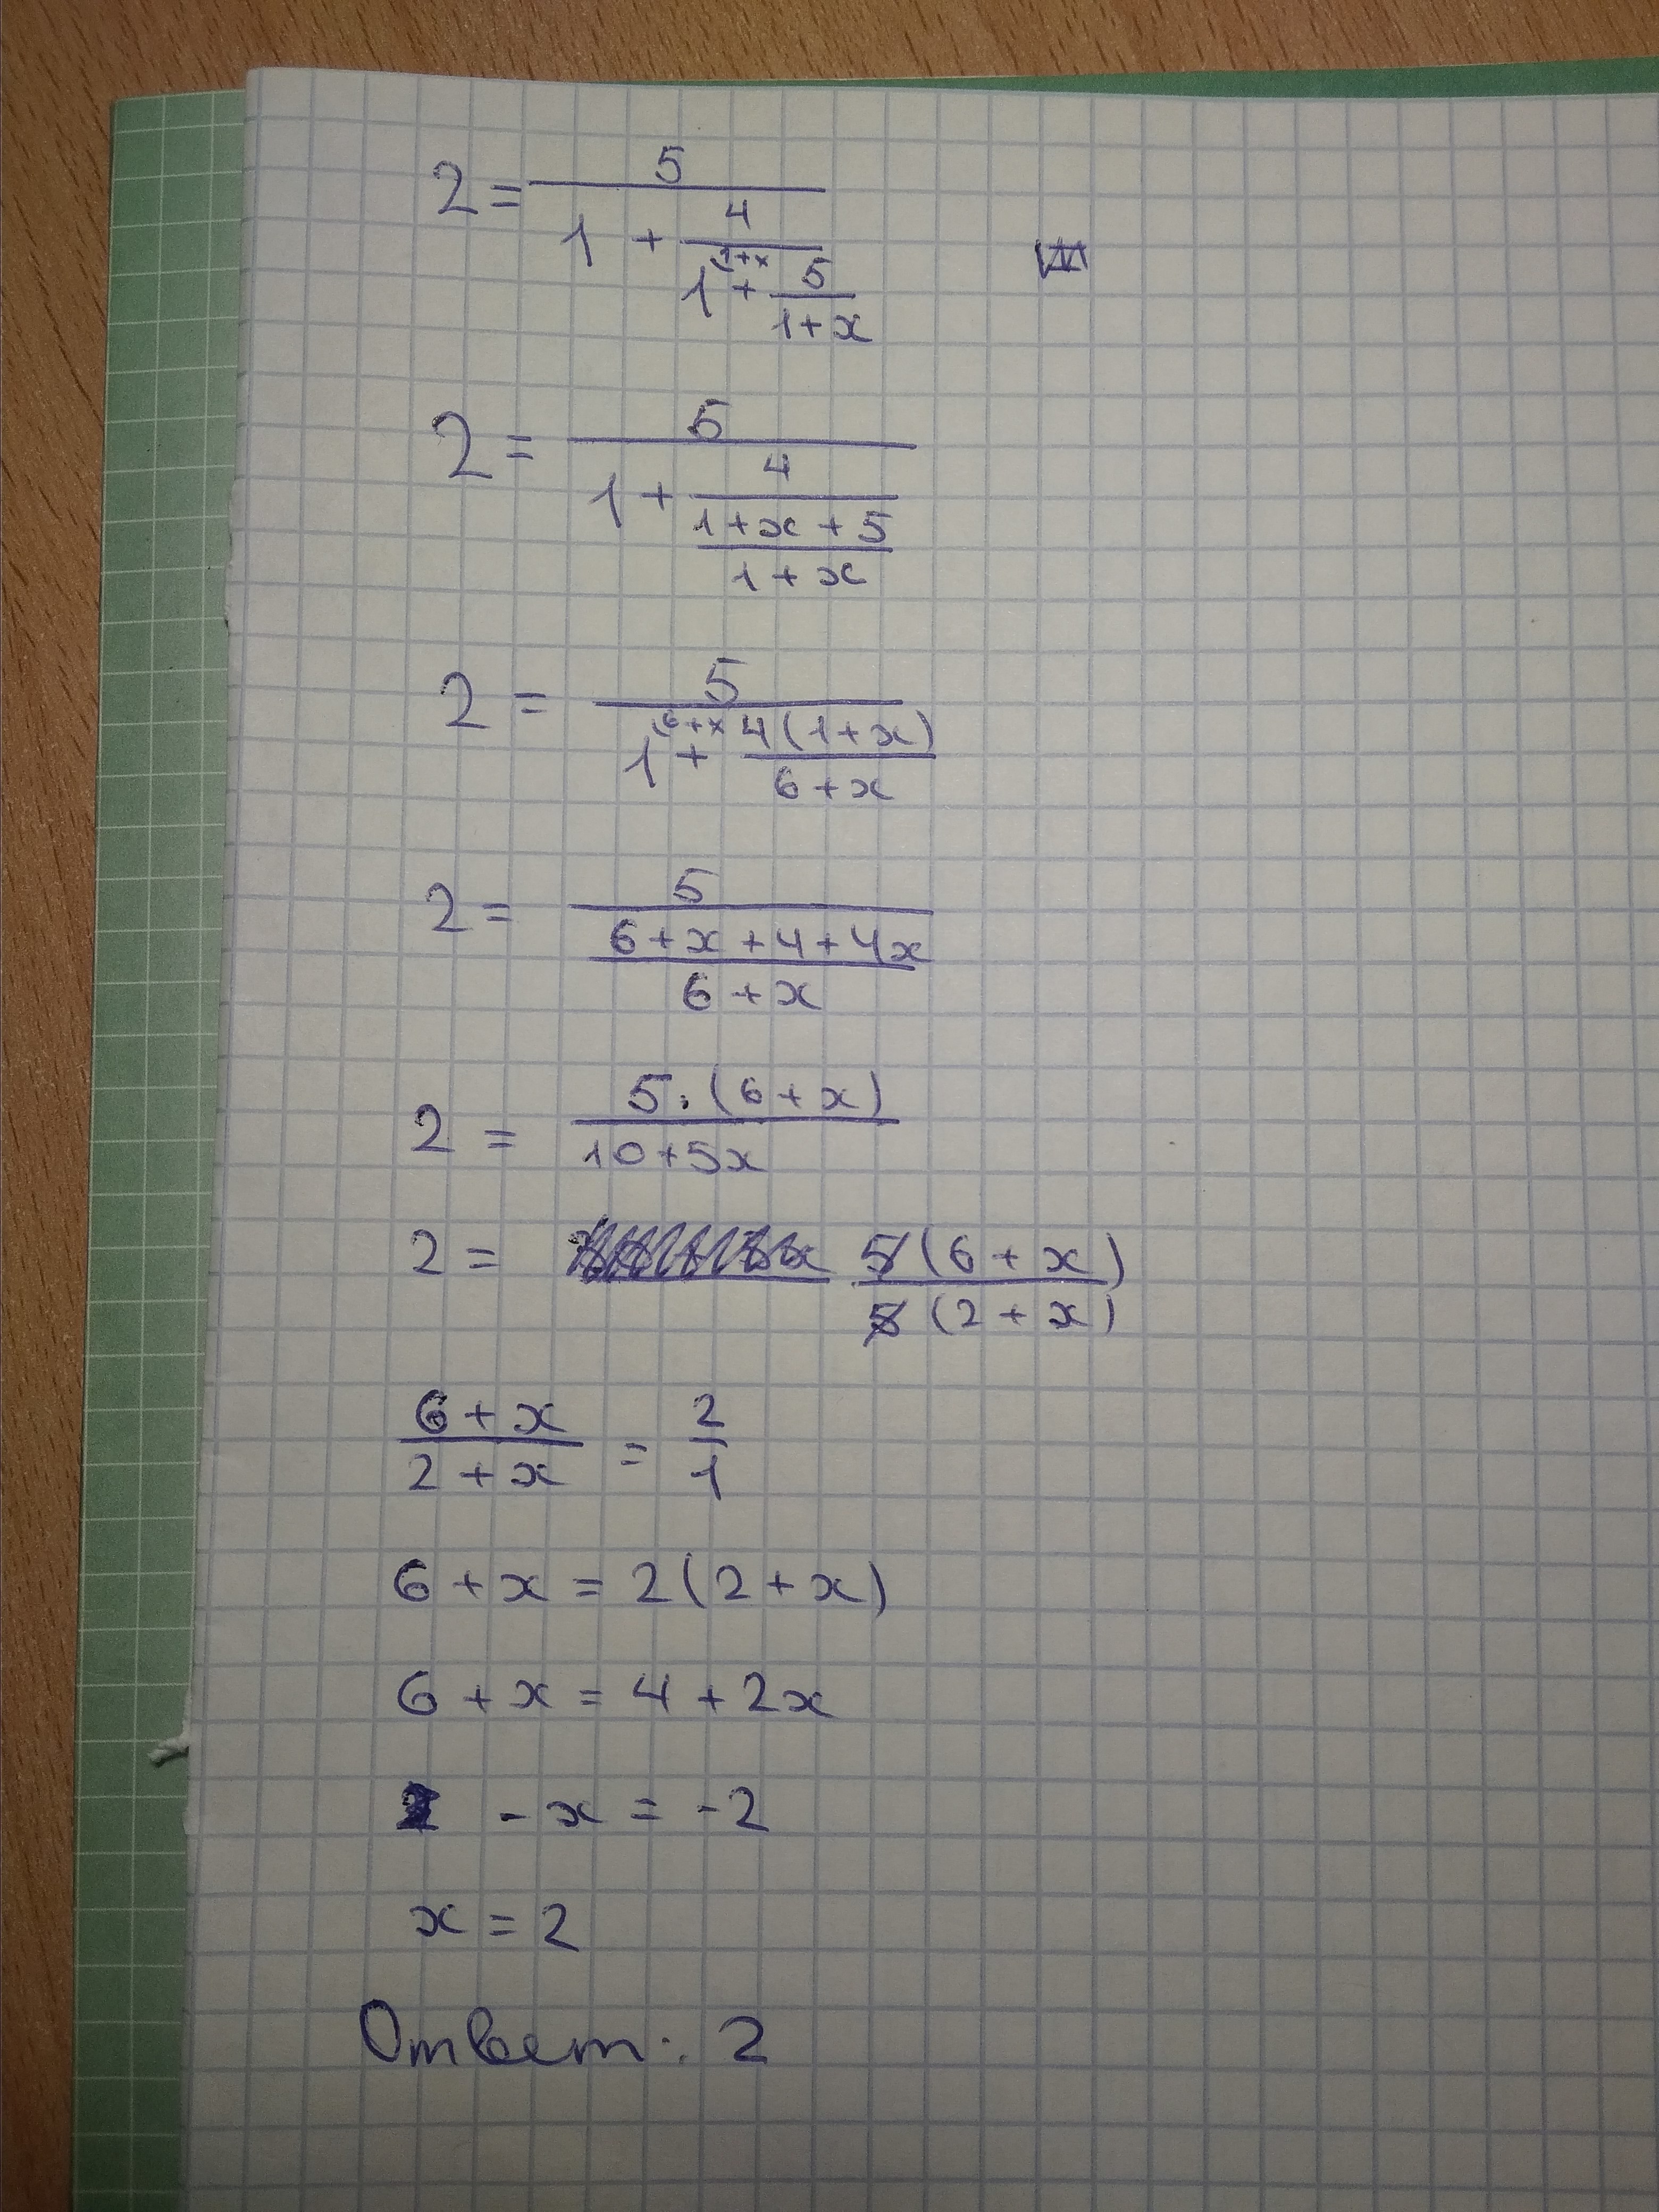 2 = \frac{5}{1 + \frac{4}{1^{(1+x} + \frac{5}{1+x}}}
2 = \frac{5}{1 + \frac{4}{\frac{1+x+5}{1+x}}}
2 = \frac{5}{1^{(6+x} + \frac{4(1+x)}{6+x}}
2 = \frac{5}{\frac{6+x+4+4x}{6+x}}
2 = \frac{5 \cdot (6+x)}{10+5x}
2 = \frac{5(6+x)}{5(2+x)}
\frac{6+x}{2+x} = \frac{2}{1}
6+x = 2(2+x)
6+x = 4+2x
-x = -2
x = 2
Ответ: 2